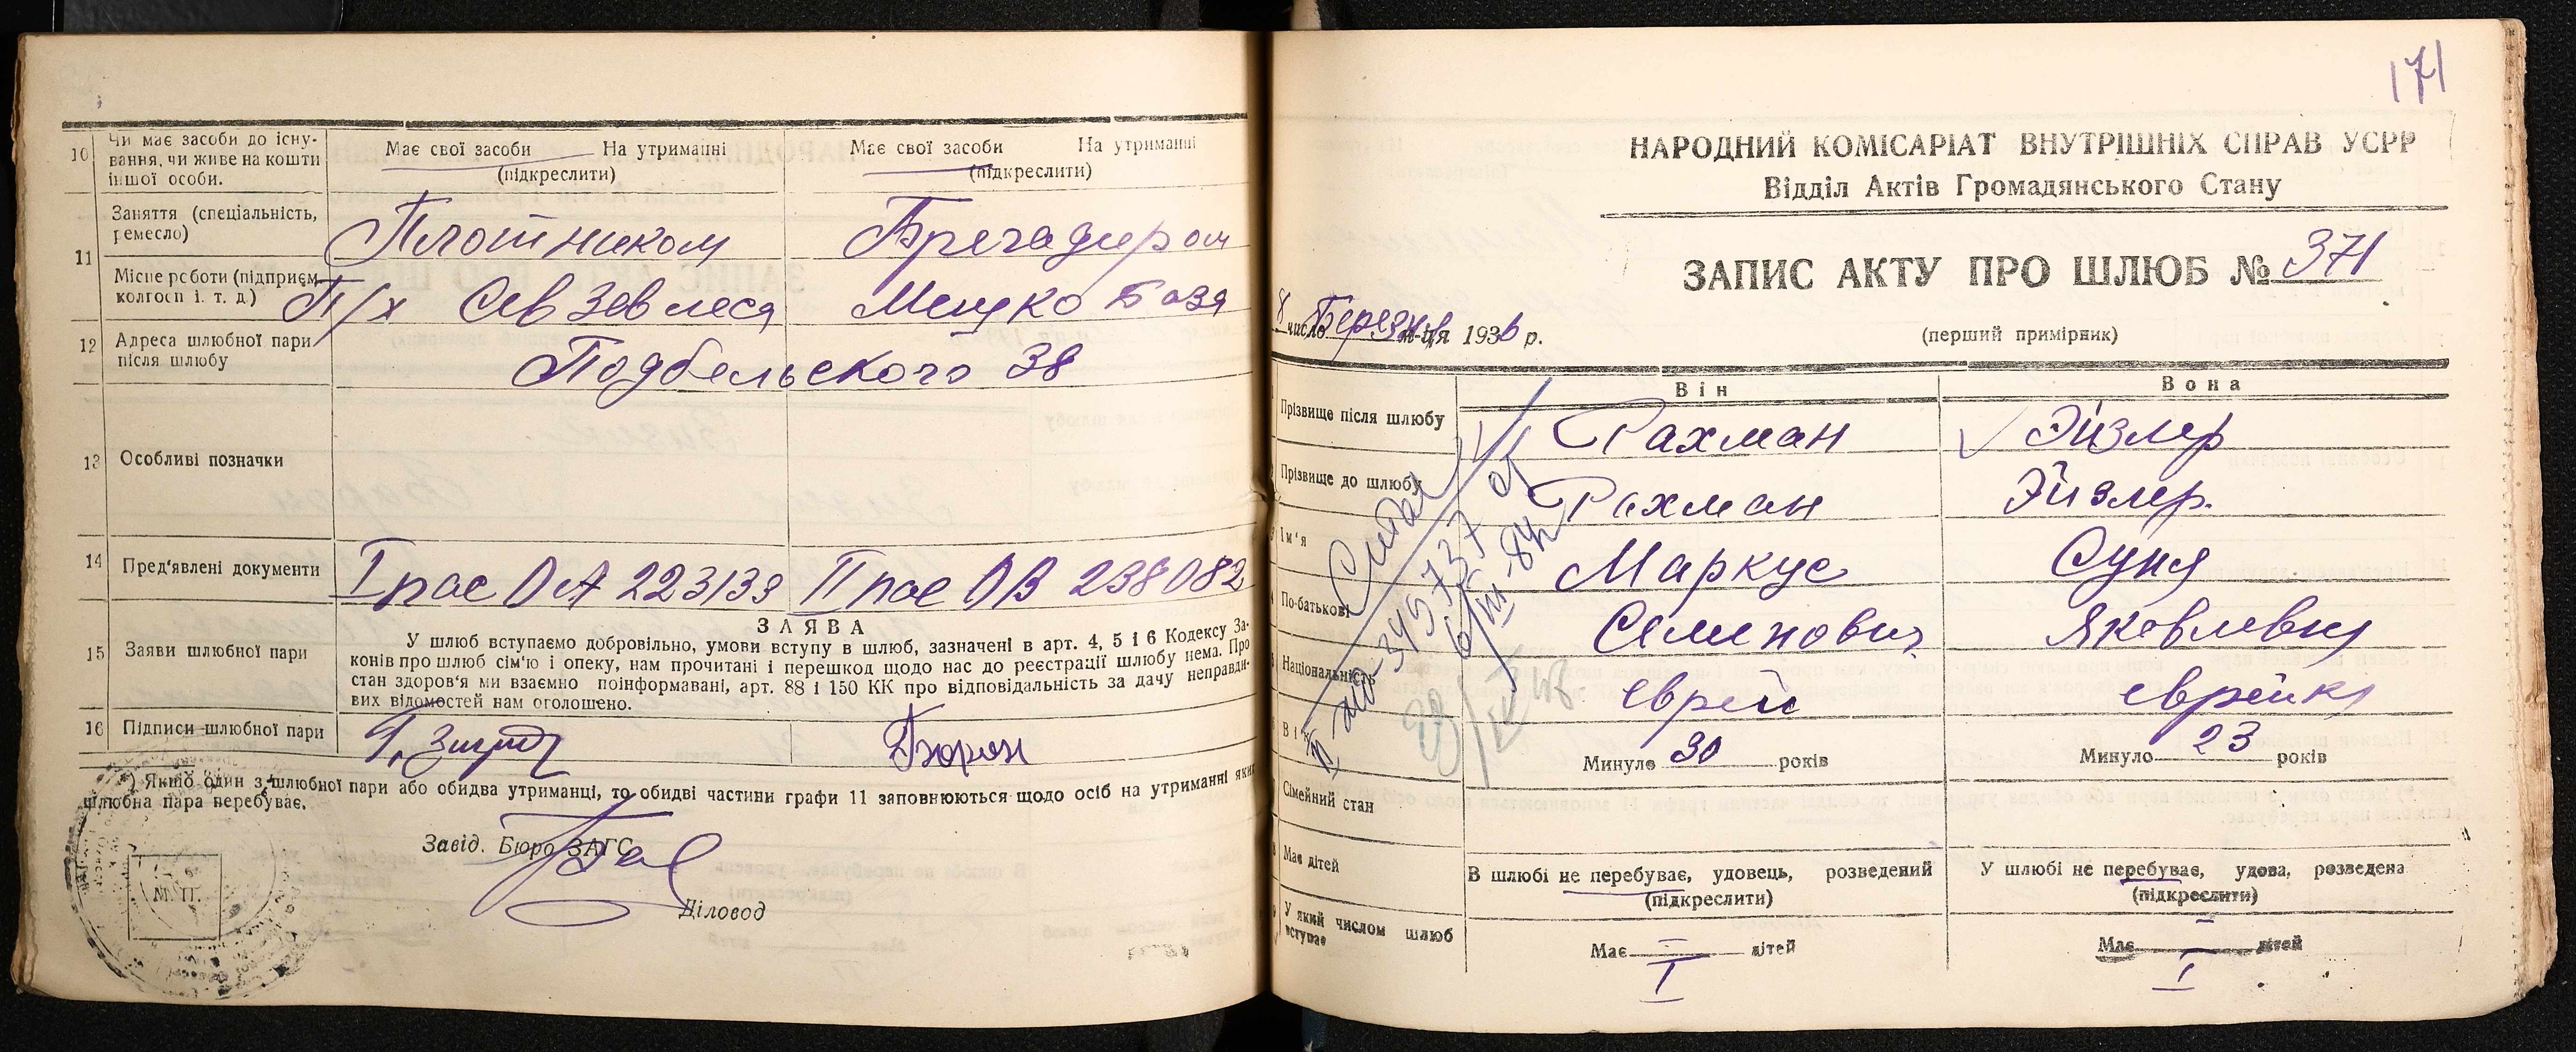 10 Чи має засоби до існування, чи живе на кошти іншої особи.
Має свої засоби На утриманні
(підкреслити)
Має свої засоби На утриманні
(підкреслити)
11 Заняття (спеціальність, ремесло)
Плотником
Бригадиром
Місце роботи (підприєм. колгосп і. т. д.)
П/х Сев Зев леса
12 Адреса шлюбної пари після шлюбу
Подбельского 38
13 Особливі позначки
14 Пред'явлені документи
I пас ОА 223133
II пас ОВ 238082
15 Заяви шлюбної пари
ЗАЯВА
У шлюб вступаємо добровільно, умови вступу в шлюб, зазначені в арт. 4, 5 і 6 Кодексу За-
конів про шлюб сім'ю і опеку, нам прочитані і перешкод щодо нас до реєстрації шлюбу нема. Про
стан здоров'я ми взаємно поінформавані, арт. 88 і 150 КК про відповідальність за дачу неправди-
вих відомостей нам оголошено.
16 Підписи шлюбної пари
) Якщо один з шлюбної пари або обидва утриманці, то обидві частини графи 11 заповнюються щодо осіб на утриманні яких
шлюбна пара перебуває.
Завід. Бюро ЗАГС
М. П.
Діловод
171
НАРОДНИЙ КОМІСАРІАТ ВНУТРІШНІХ СПРАВ УСРР
Відділ Актів Громадянського Стану
ЗАПИС АКТУ ПРО ШЛЮБ № 371
8 число Березня м-ця 1936 р.
(перший примірник)
Він
Вона
Прізвище після шлюбу
Рахман
Эйзлер
Прізвище до шлюбу
Рахман
Эйзлер.
Ім'я
Маркус
Суня
По-батькові
Семенович
Яковлевна
Національність
еврей
еврейка
Вік
Минуло 30 років
Минуло 23 років
Сімейний стан
В шлюбі не перебуває, удовець, розведений
(підкреслити)
У шлюбі не перебуває, удова, розведена
(підкреслити)
Має дітей
Має — дітей
Має — дітей
У який числом шлюб вступає
I
I